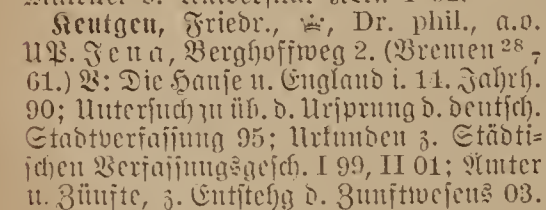 Keutgen, Friedr., Dr. phil., a.o.
UP. Jena, Berghoffweg 2. (Bremen 28/7
61.) V: Die Hanse u. England i. 14. Jahrh.
90; Untersuch zu üb. d. Ursprung d. deutsch.
Stadtverfassung 95; Urkunden z. Städti-
schen Verfassungsgesch. I 99, II 01; Ämter
u. Zünfte, z. Entstehg d. Zunftwesens 03.